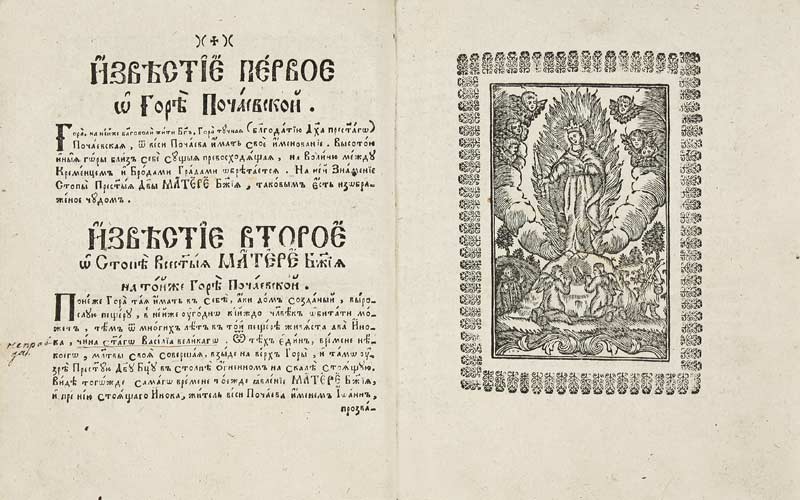 И҆ЗВѢ́СТЇЕ ПЕ́РВОЕ
ѡ҆ Горѣ̀ Поча́евской .
Гора̀, на ней́же бл҃говолѝ жи́ти Бг҃ъ, Гора̀ тꙋ́чная (бл҃года́тїю Дх҃а прест҃а́гѡ)
Поча́евская, ѿ ве́си Поча́ева и҆́мать своѐ и҆менова́нїе. Высото́ю
и҆ны́я го́ры бли́зъ себѐ сꙋ́щыя превосходя́щая, на Волы́ню ме́ждꙋ
Кремене́цем и҆ Бро́дами Гра́дами ѡ҆брѣта́ется. На не́й Зна́менїе
Стопы̀ Прест҃ы́я Дв҃ы МАТЕРЕ Бж҃їя, таковы́мъ є҆́сть и҆зѡбра-
же́ное чꙋ́домъ.
И҆ЗВѢ́СТЇЕ ВТОРО́Е
ѡ҆ Стопѣ̀ Всест҃ы́я МАТЕРЕ Бж҃їя
на то́йже Горѣ̀ Поча́евской .
Поне́же Гора̀ та́я и҆́мать въ себѣ̀, а҆́ки до́м созда́ный, вы́ро-
слꙋю пеще́рꙋ, в не́йже ᲂу҆го́днѡ кі́йждо чл҃вѣ́къ ѡ҆бита́ти мо́-
жетъ, тѣ́мъ ѿ мно́гихъ лѣ́тъ въ то́й пеще́рѣ живя́ста два̀ И҆но-
ка, чи́на ст҃а́гѡ Васи́лїа вели́кагѡ. Ѿ тѣ́хъ є҆ди́нъ, вре́мене нѣ́-
коегѡ, мл҃твы своя̀ соверша́я, взы́де на ве́рхъ Горы̀, и҆ та́мѡ ᲂу҆-
зрѣ̀ Прест҃ꙋ́ю Дв҃ꙋ Бц҃ꙋ въ столпѣ̀ ѻ҆́гненномъ на ска́лѣ стоя́щꙋю.
Ви́дѣ тогѡ́жде са́магѡ вре́мене то́ежде ꙗ҆вле́нїе МАТЕРЕ Бж҃їя,
и҆ пре не́ю стоя́щаго И҆́нока, жи́тель ве́си Поча́ева и҆́менемъ І҆ѡа́ннъ,
прозва-